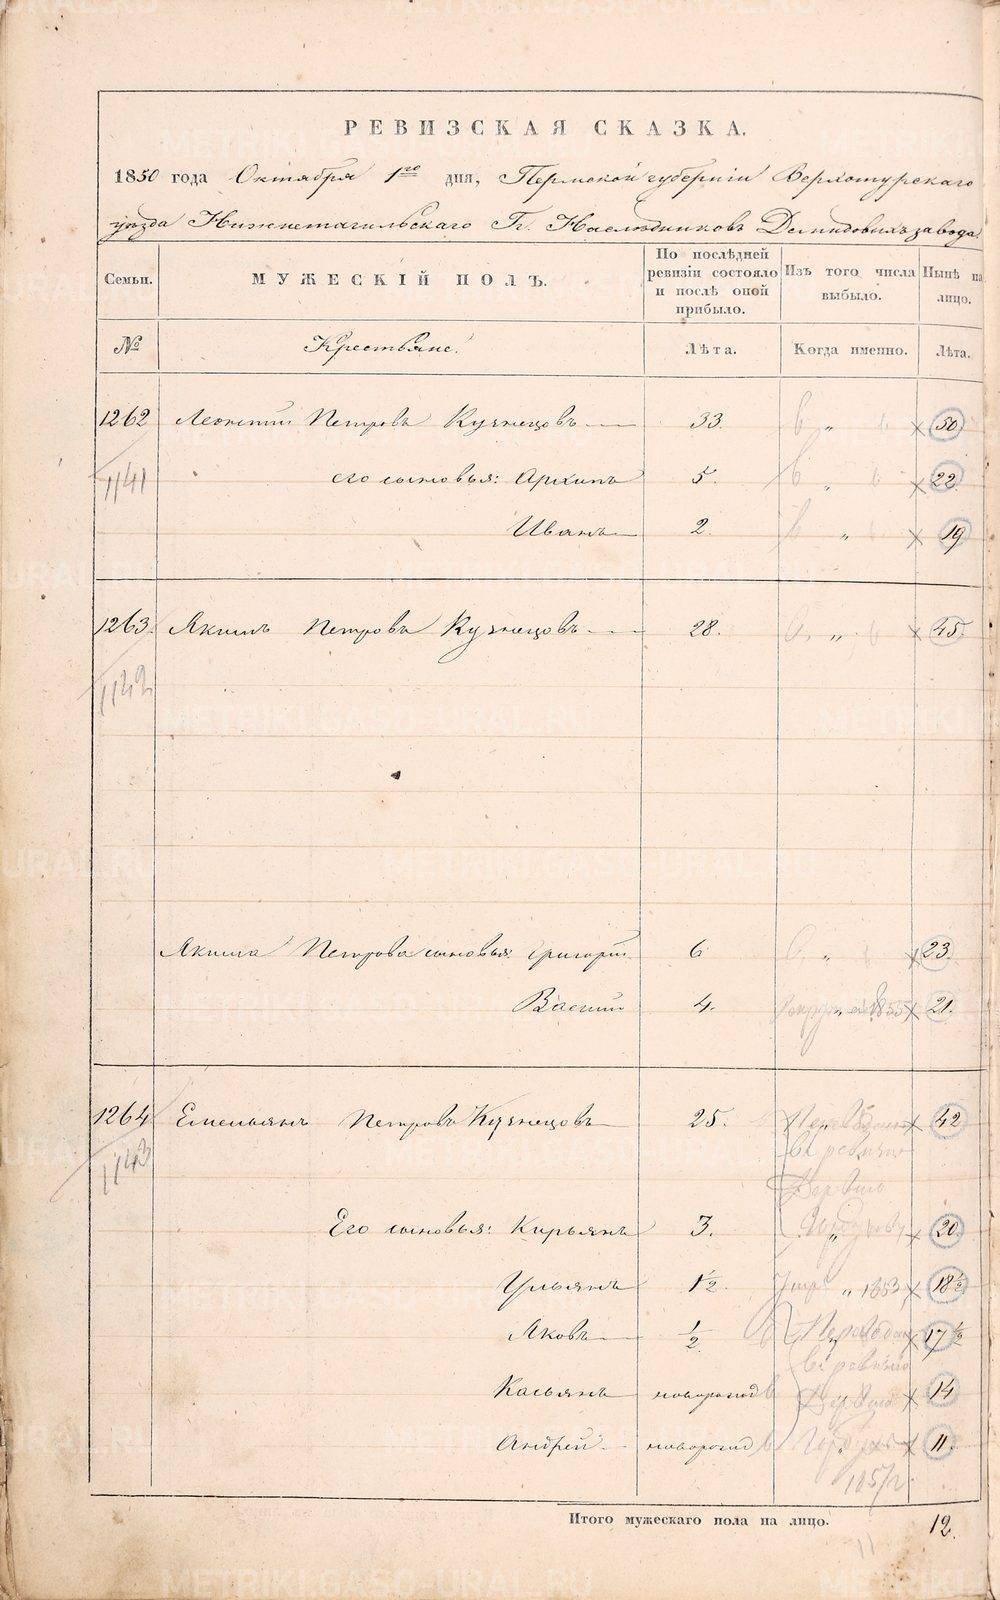 РЕВИЗСКАЯ СКАЗКА.
1850 года Октября 1го дня, Пермской губернiи Верхотурскаго
уѣзда Нижнетагильскаго Гг. Наслѣдниковъ Демидовыхъ завода.
Семьи. МУЖЕСКIЙ ПОЛЪ. По послѣдней ревизiи состояло и послѣ оной прибыло. Изъ того числа выбыло. Нынѣ на лицо.
№ Крестьяне. Лѣта. Когда именно. Лѣта.
1262 Леонтiй Петровъ Кузнецовъ 33. " 50
1141 его сыновья: Архипъ 5. " 22
Иванъ 2. " 19
1263. Якимъ Петровъ Кузнецовъ 28. " 45
1142
Якима Петрова сыновья: Григорiй 6 " 23.
Васили 4. " 1855 21.
1264 Емельянъ Петровъ Кузнецовъ 25. " 42
1143 въ ревизiю
Его сыновья: Кирьянъ 3. " 20.
Ульянъ 1 1/2. Умер " 1853 18 1/2
Яковъ 1/2 " 17 1/2
въ ревизiю
Касьянъ новорожд " 14
Андрей новорожд " 11.
1857 г.
Итого мужескаго пола на лицо. 12.
11
METRIKI.GASO-URAL.RU